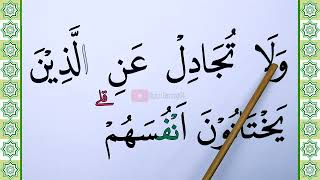 وَلَا تُجَادِلْ عَنِ الَّذِيْنَ
يَخْتَانُوْنَ اَنْفُسَهُمْ ۗ